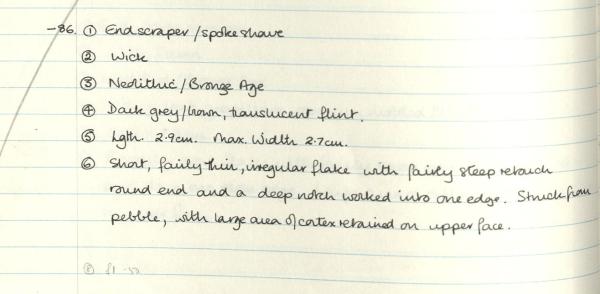 -86. ① Endscraper/spokeshave
② Wick
③ Neolithic/Bronze Age
④ Dark grey/brown, translucent flint.
⑤ Lgth. 2.9cm. Max. Width 2.7cm.
⑥ Short, fairly thin, irregular flake with fairly steep retouch
round end and a deep notch worked into one edge. Struck from
pebble, with large area of cortex retained on upper face.
⑧